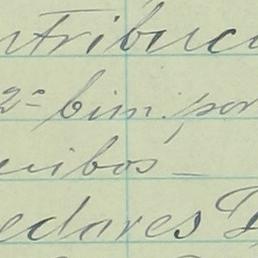 ntribuc
2º bim. por
uibos _
edores D